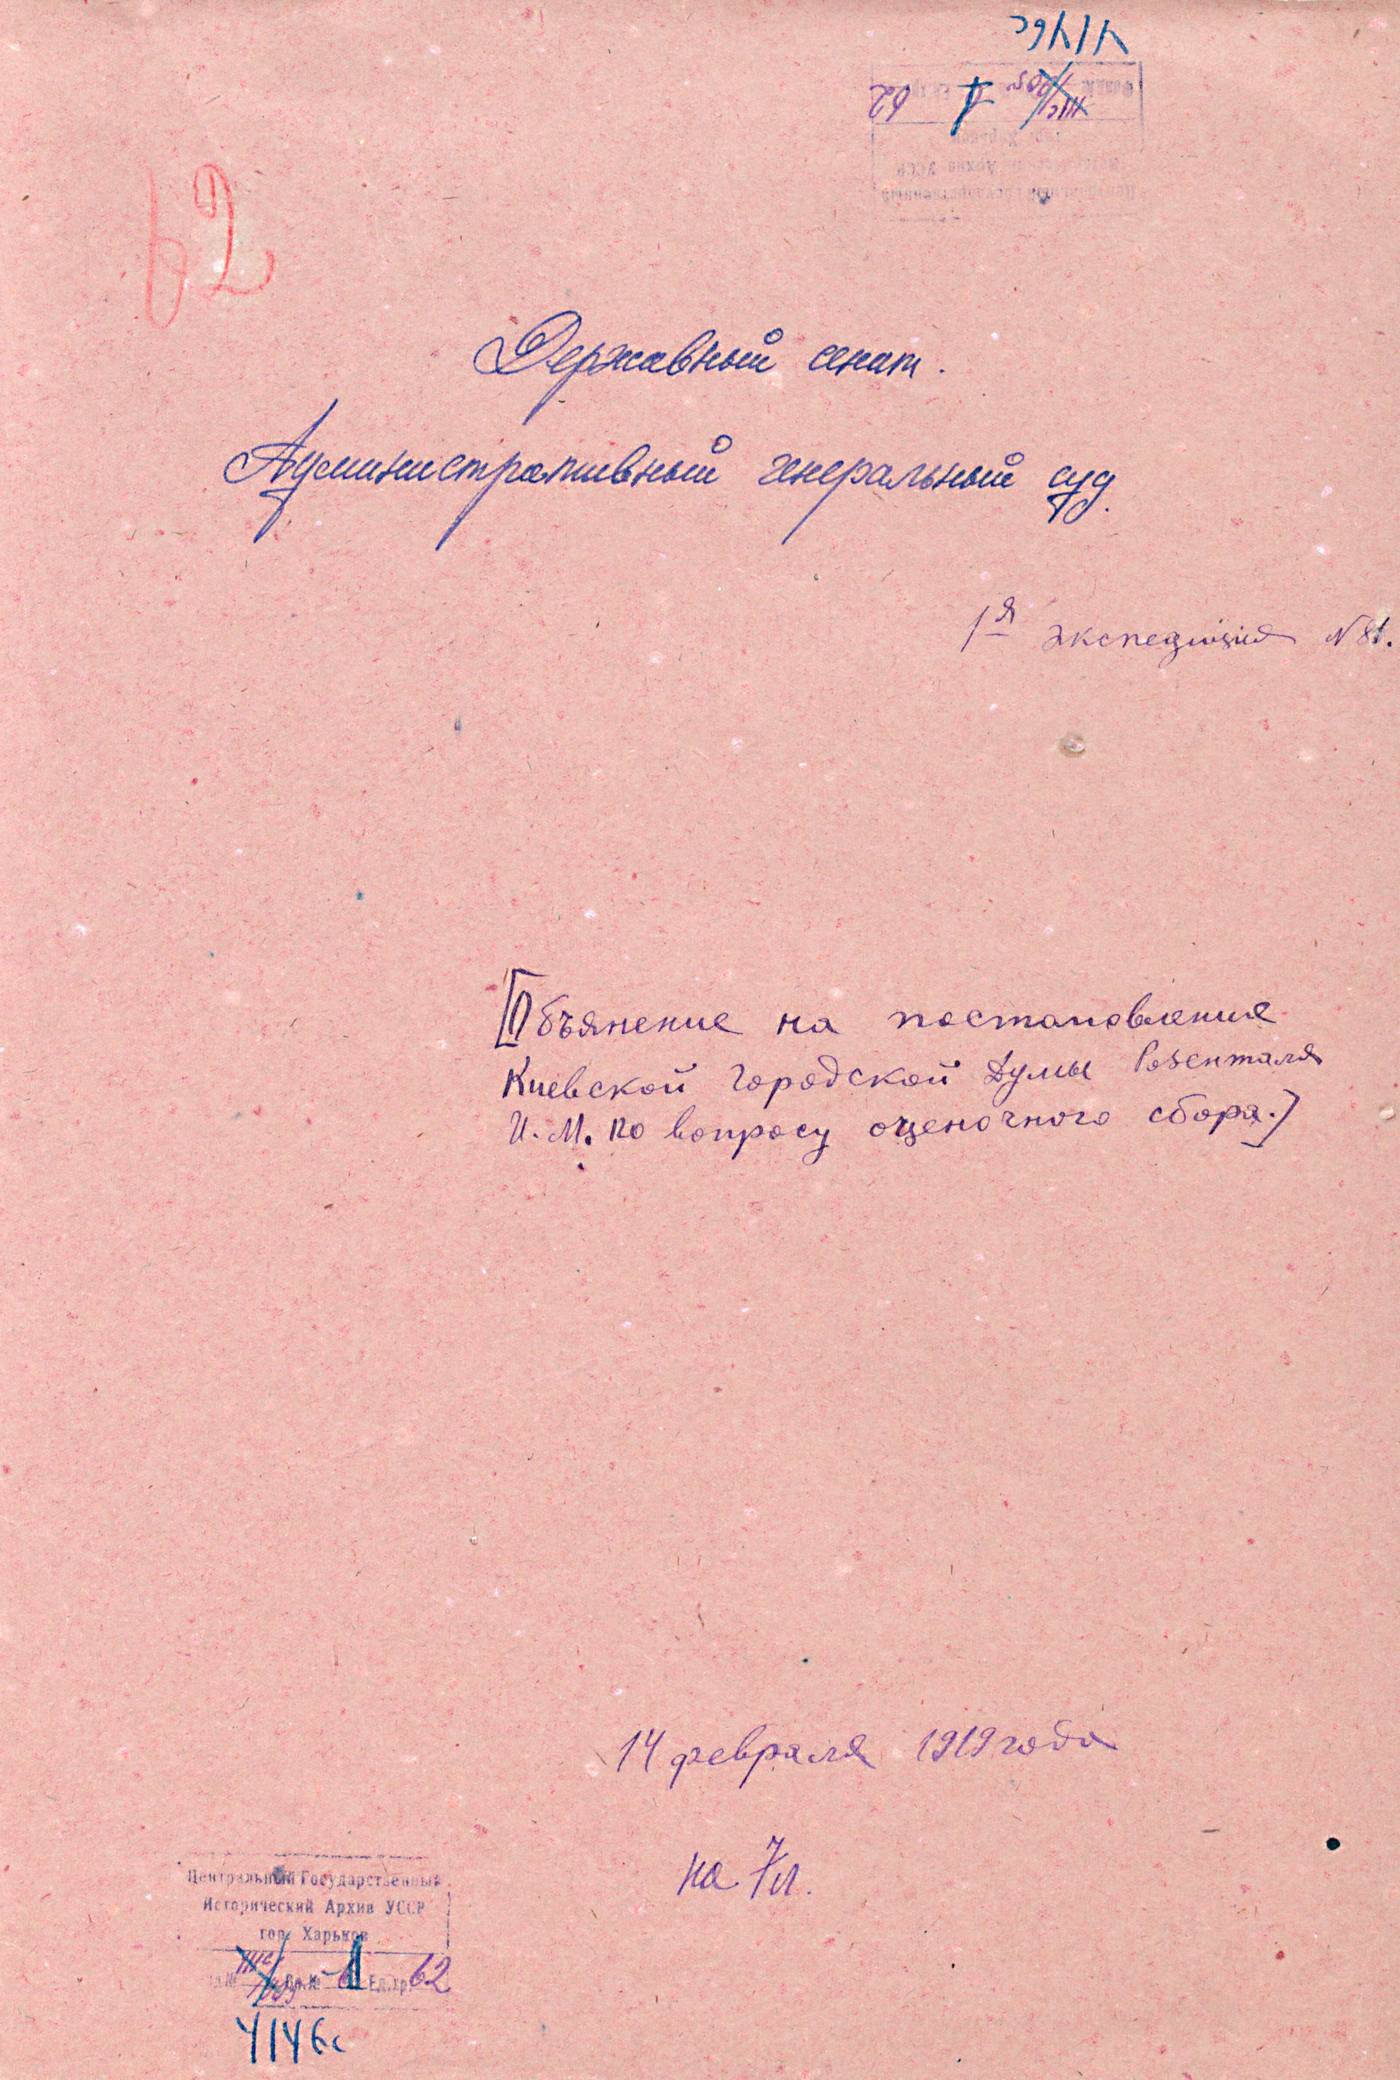 62
Державный сенат.
Административный генеральный суд.
1я экспедиция N 81.
[Объянение на постановление
Киевской Городской Думы Розенталя
И.М. по вопросу оценочного сбора.]
14 февраля 1919 года
на 7 л.
Центральный Государственный
Исторический Архив УССР
гор. Харьков
Оп.№ 1 Ед.хр. 62